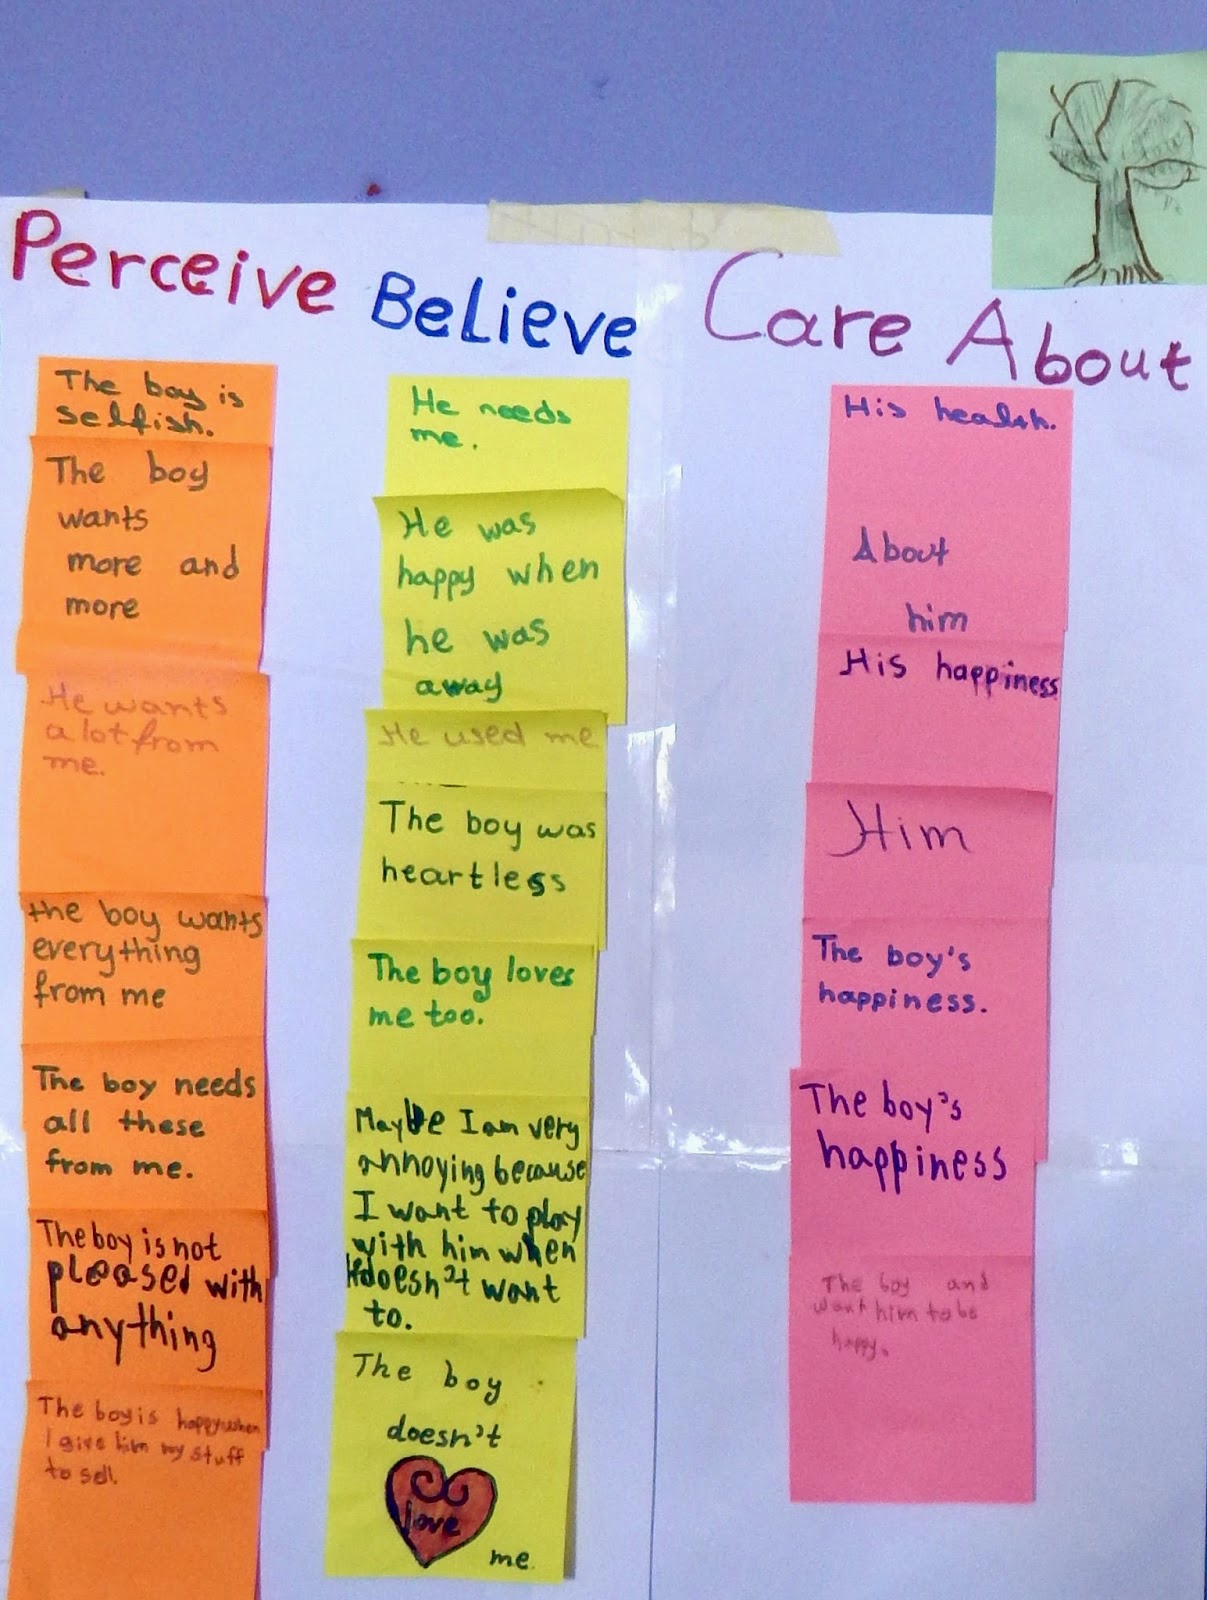 Perceive
Believe
Care About
The boy is
selfish.
The boy
wants
more and
more
He wants
a lot from
me.
the boy wants
everything
from me
The boy needs
all these
from me.
The boy is not
pleased with
anything
The boy is happy when
I give him my stuff
to sell.
He needs
me.
He was
happy when
he was
away
He used me
The boy was
heartless
The boy loves
me too.
Maybe I am very
annoying because
I want to play
with him when
doesn't want
to.
The boy
doesn't
love
me.
His health.
About
him
His happiness
Him
The boy's
happiness.
The boy's
happiness
The boy and
want him to be
happy.